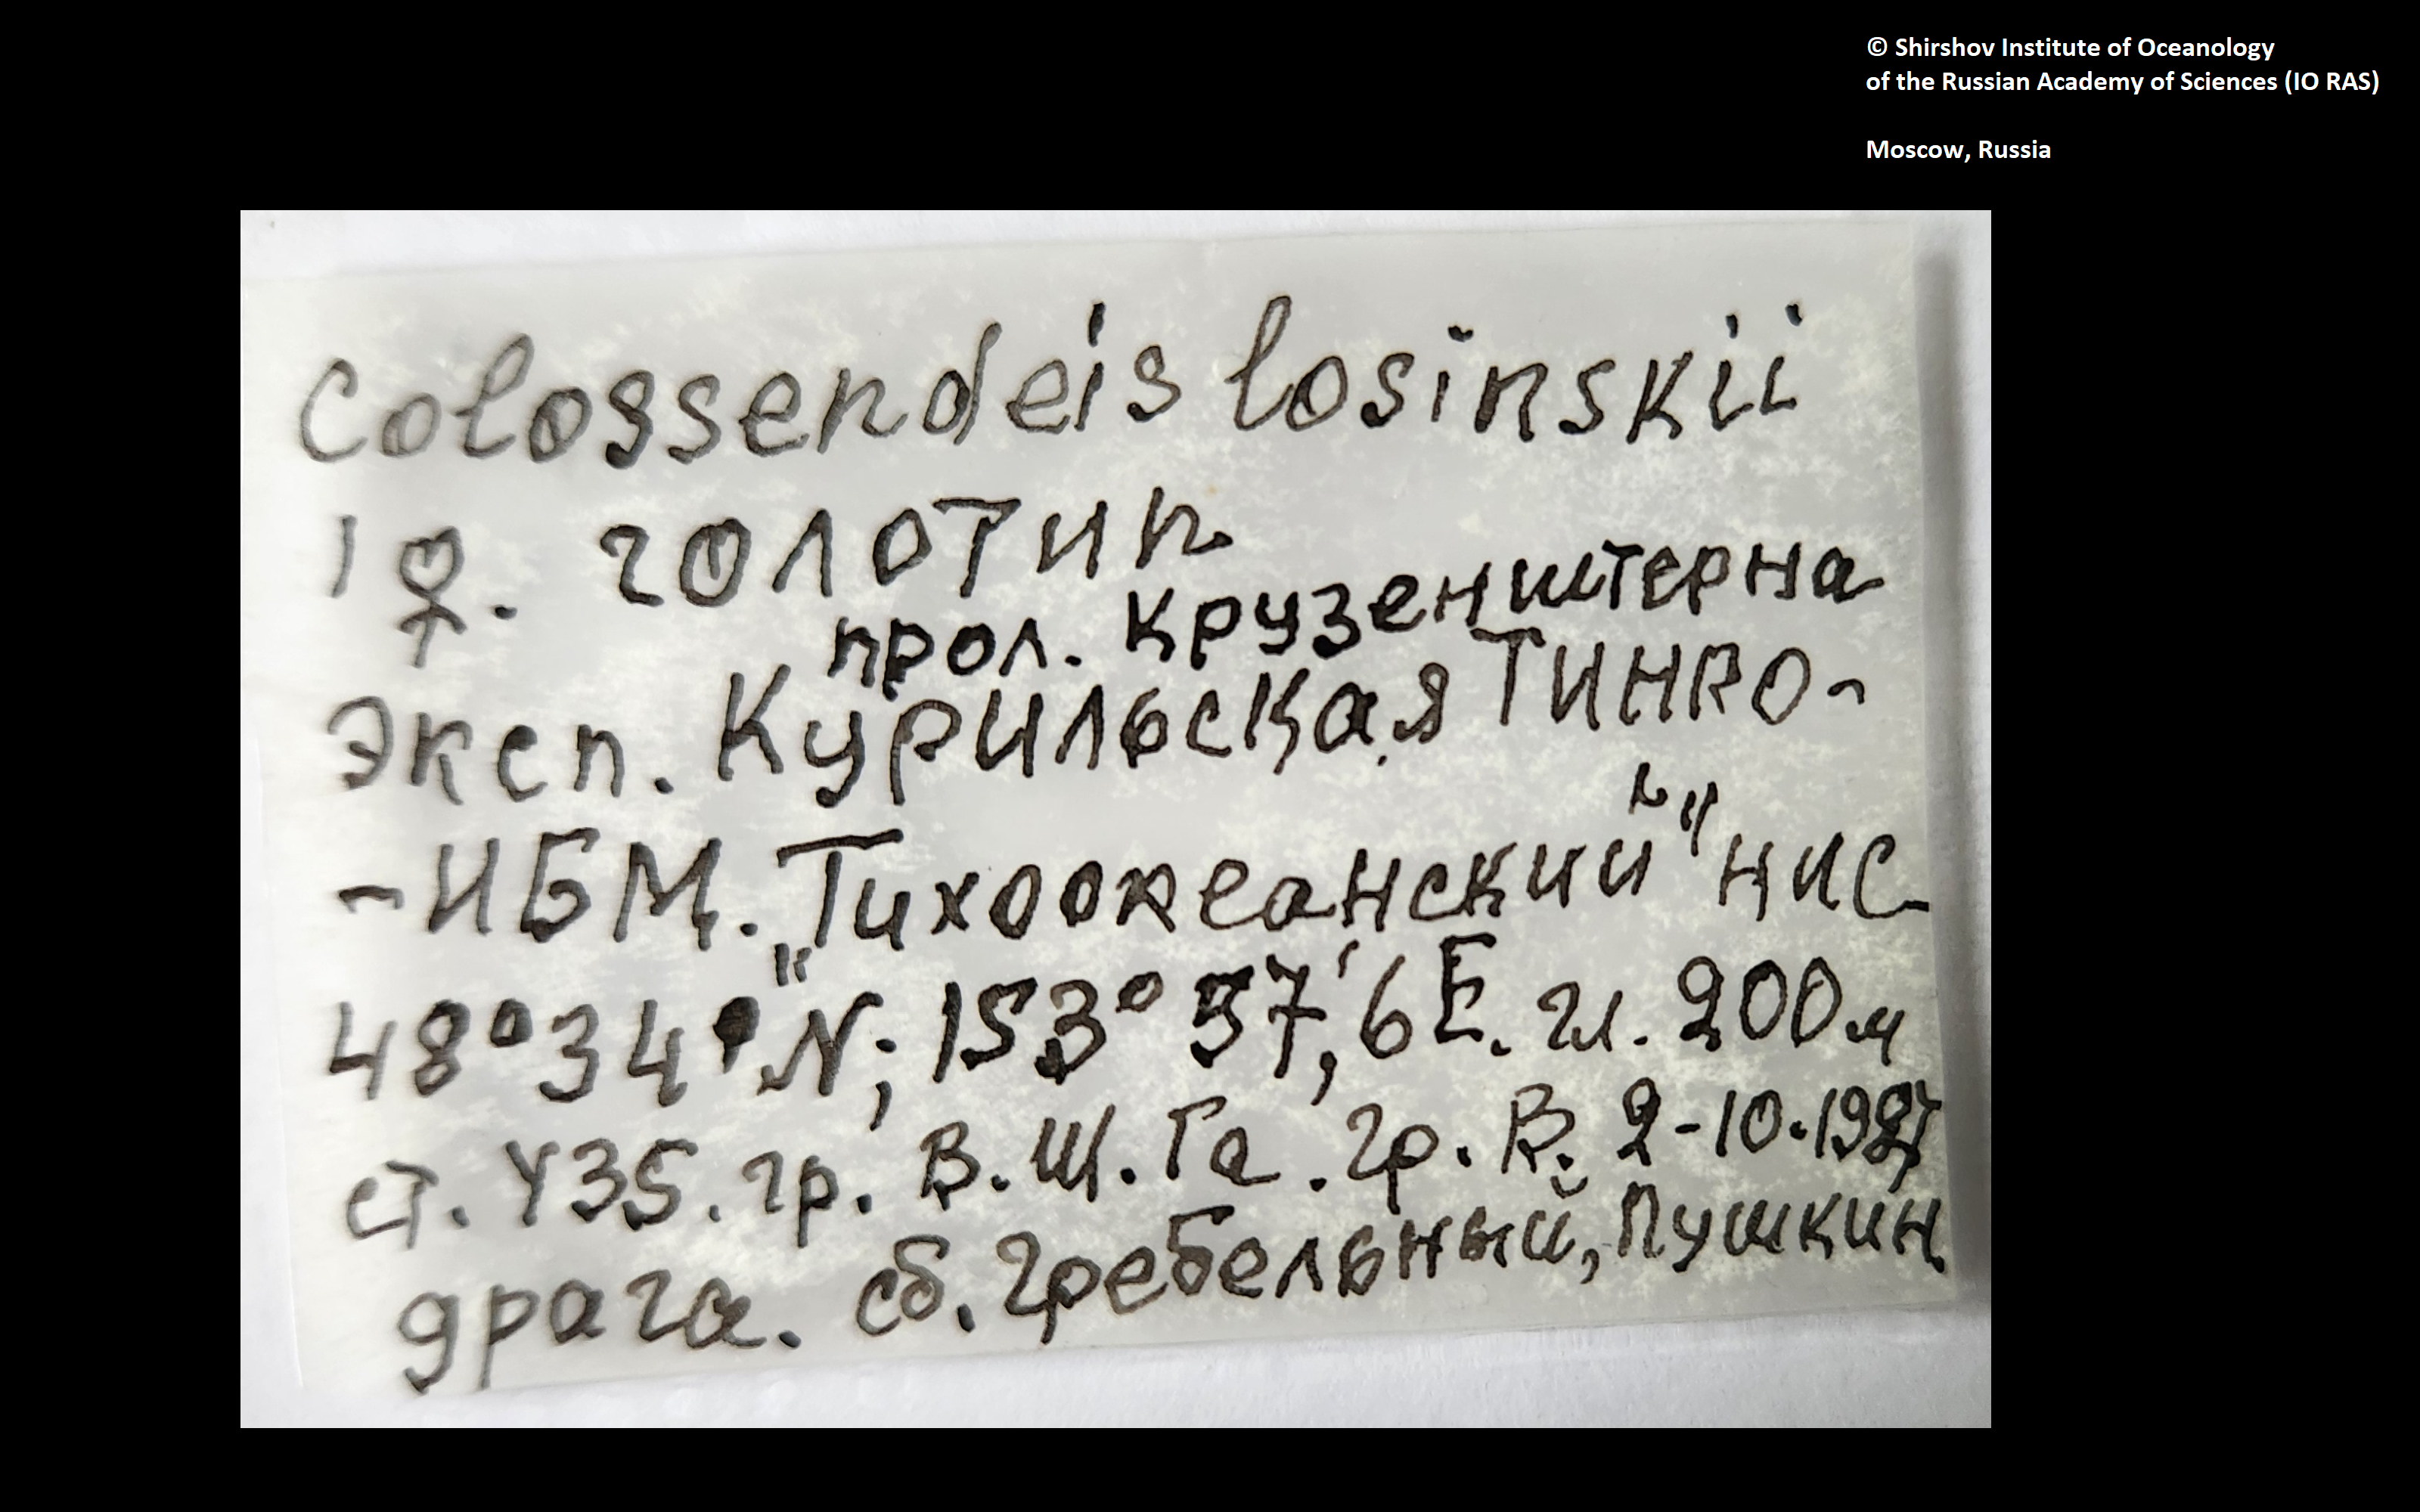 © Shirshov Institute of Oceanology
of the Russian Academy of Sciences (IO RAS)
Moscow, Russia
Colossendeis losinskii
1 ♀. голотип
прол. Крузенштерна
Эксп. Курильская ТИНРО-
-ИБМ. „Тихоокеанский" НИС
48°34' N; 153°57,'6 E. гл. 200 м
ст. У35. гр. В. Щ. Га. Гр. В. 2-10-1987
драга. сб. Гребельный, Пушкин